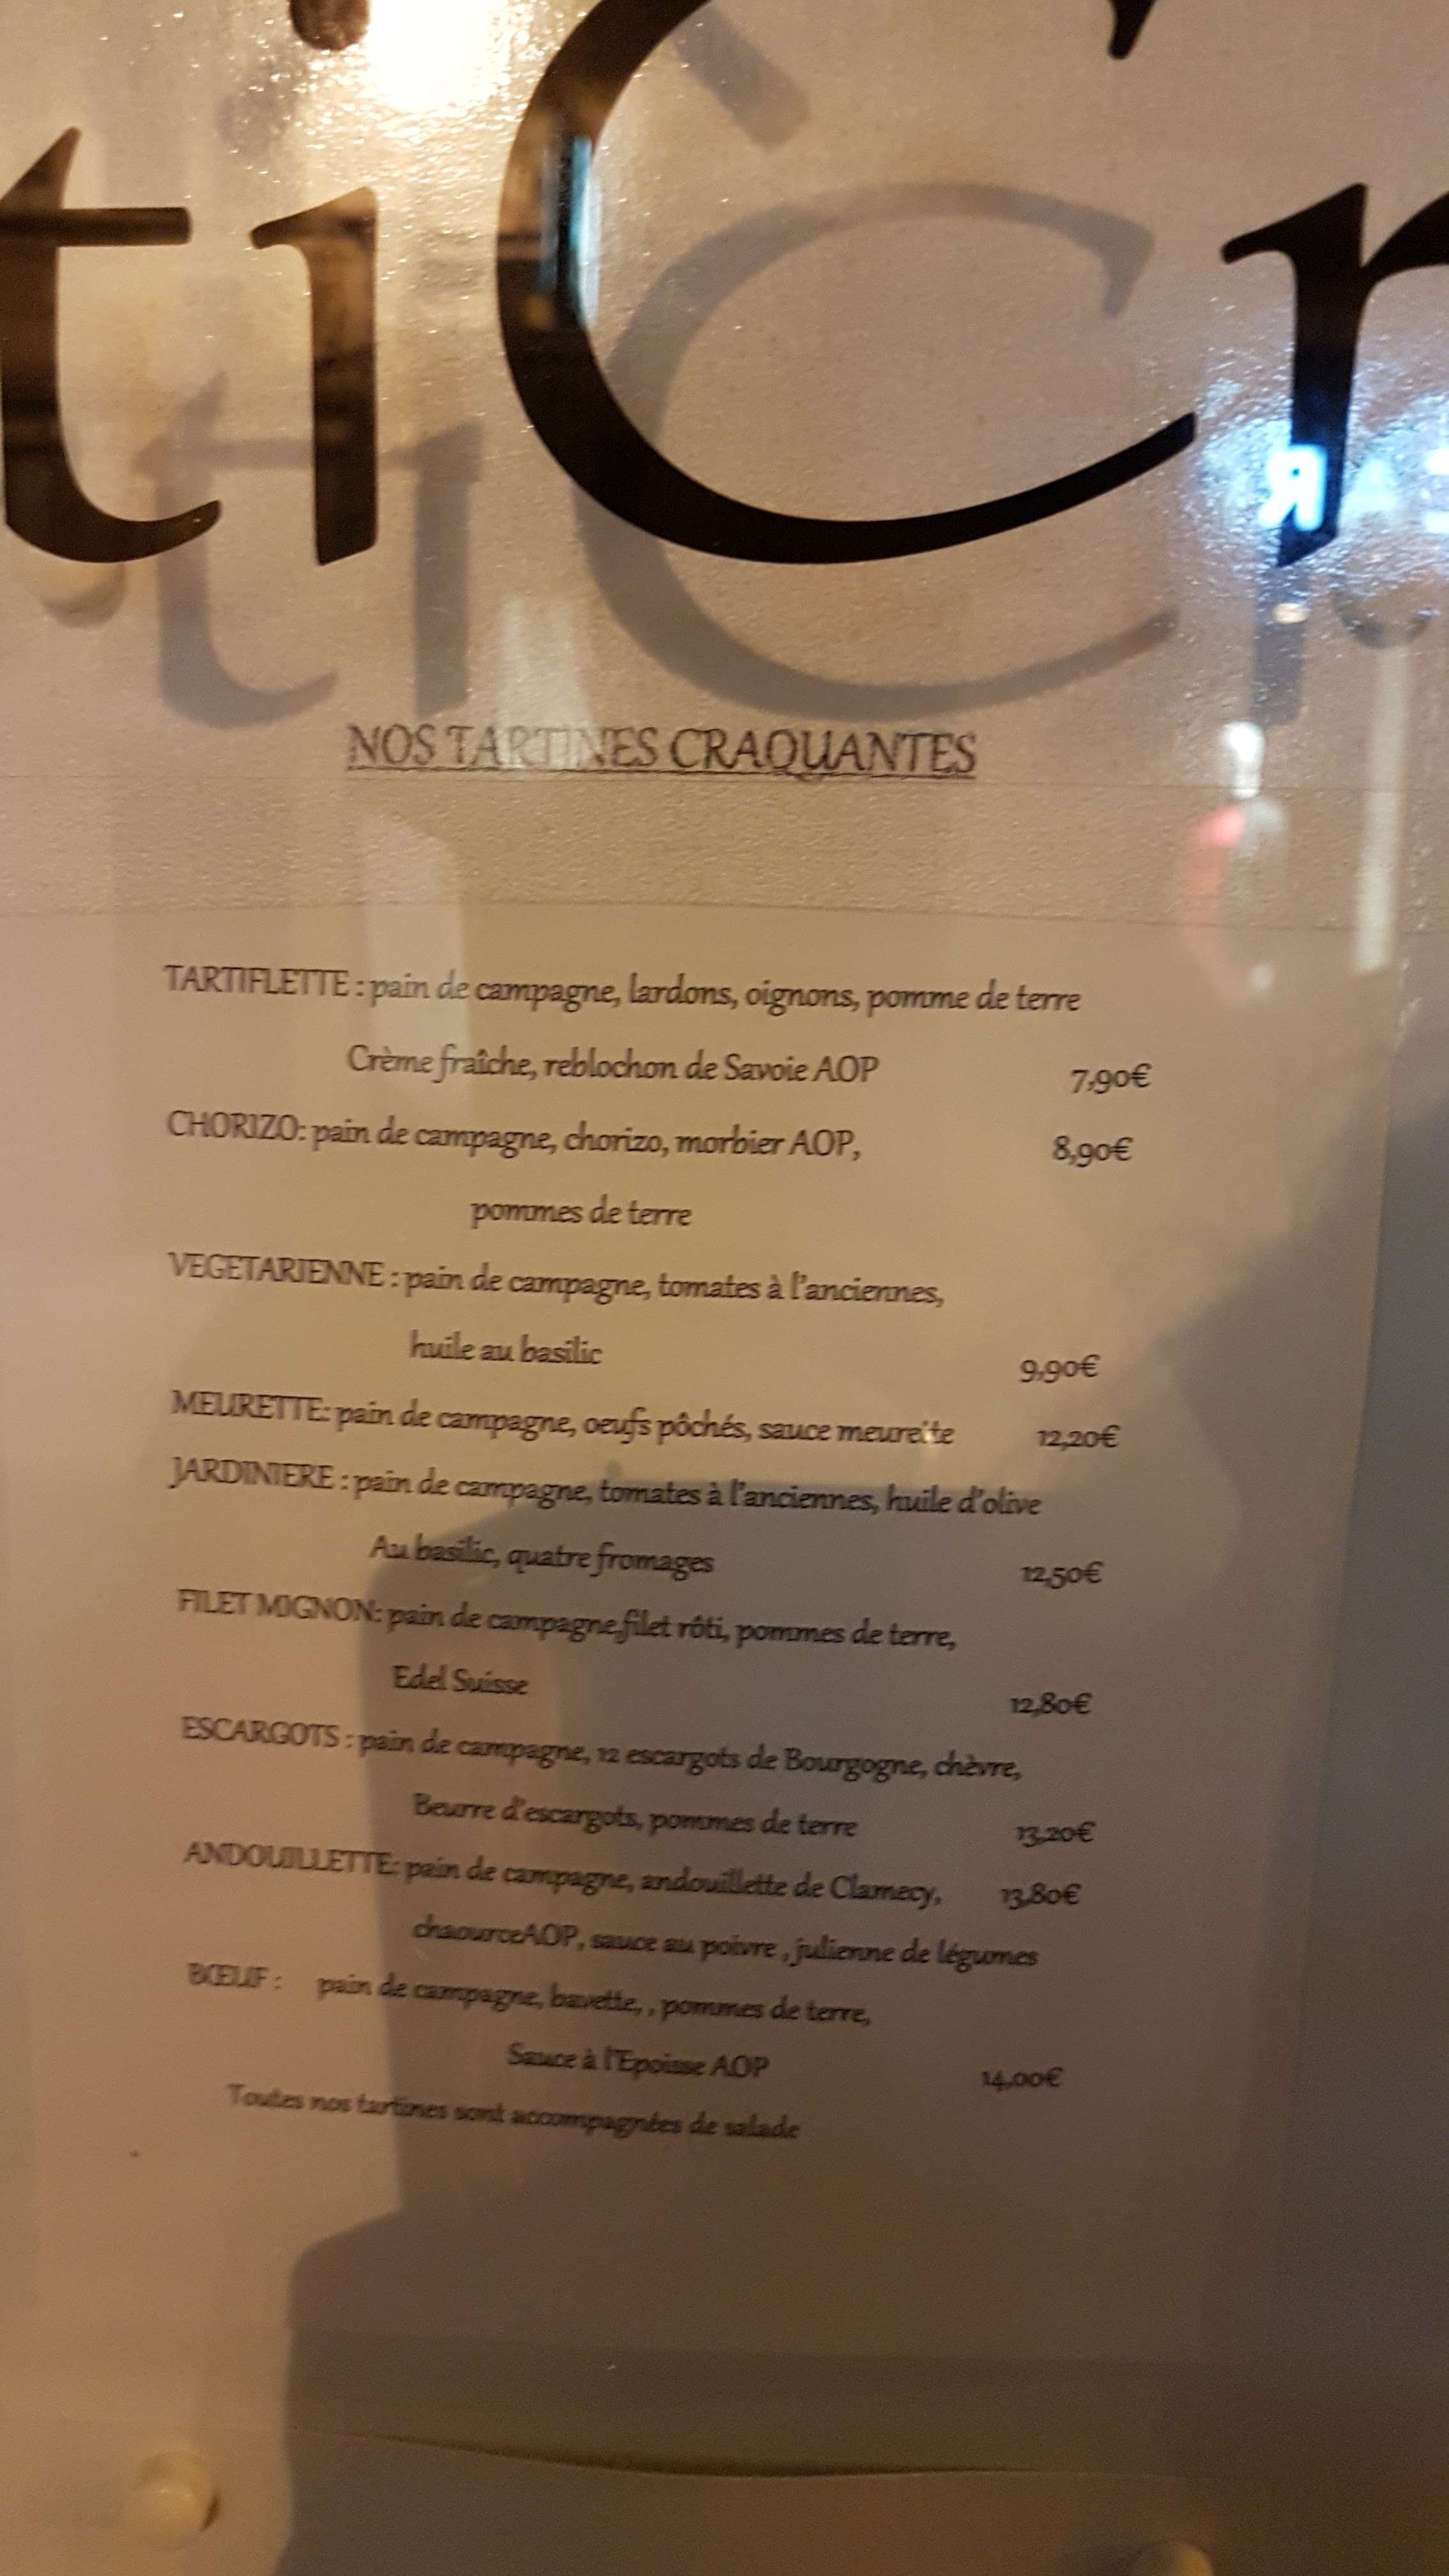 tiCr
NOS TARTINES CRAQUANTES
TARTIFLETTE : pain de campagne, lardons, oignons, pomme de terre
Crème fraîche, reblochon de Savoie AOP 7,90€
CHORIZO: pain de campagne, chorizo, morbier AOP, 8,90€
pommes de terre
VEGETARIENNE : pain de campagne, tomates à l'anciennes,
huile au basilic 9,90€
MEURETTE: pain de campagne, oeufs pôchés, sauce meurette 12,20€
JARDINIERE : pain de campagne, tomates à l'anciennes, huile d'olive
Au basilic, quatre fromages 12,50€
FILET MIGNON: pain de campagne,filet rôti, pommes de terre,
Edel Suisse 12,80€
ESCARGOTS : pain de campagne, 12 escargots de Bourgogne, chèvre,
Beurre d'escargots, pommes de terre 13,20€
ANDOUILLETTE: pain de campagne, andouillette de Clamecy, 13,80€
chaourceAOP, sauce au poivre , julienne de légumes
BŒUF : pain de campagne, bavette, , pommes de terre,
Sauce à l'Epoisse AOP 14,00€
Toutes nos tartines sont accompagnées de salade